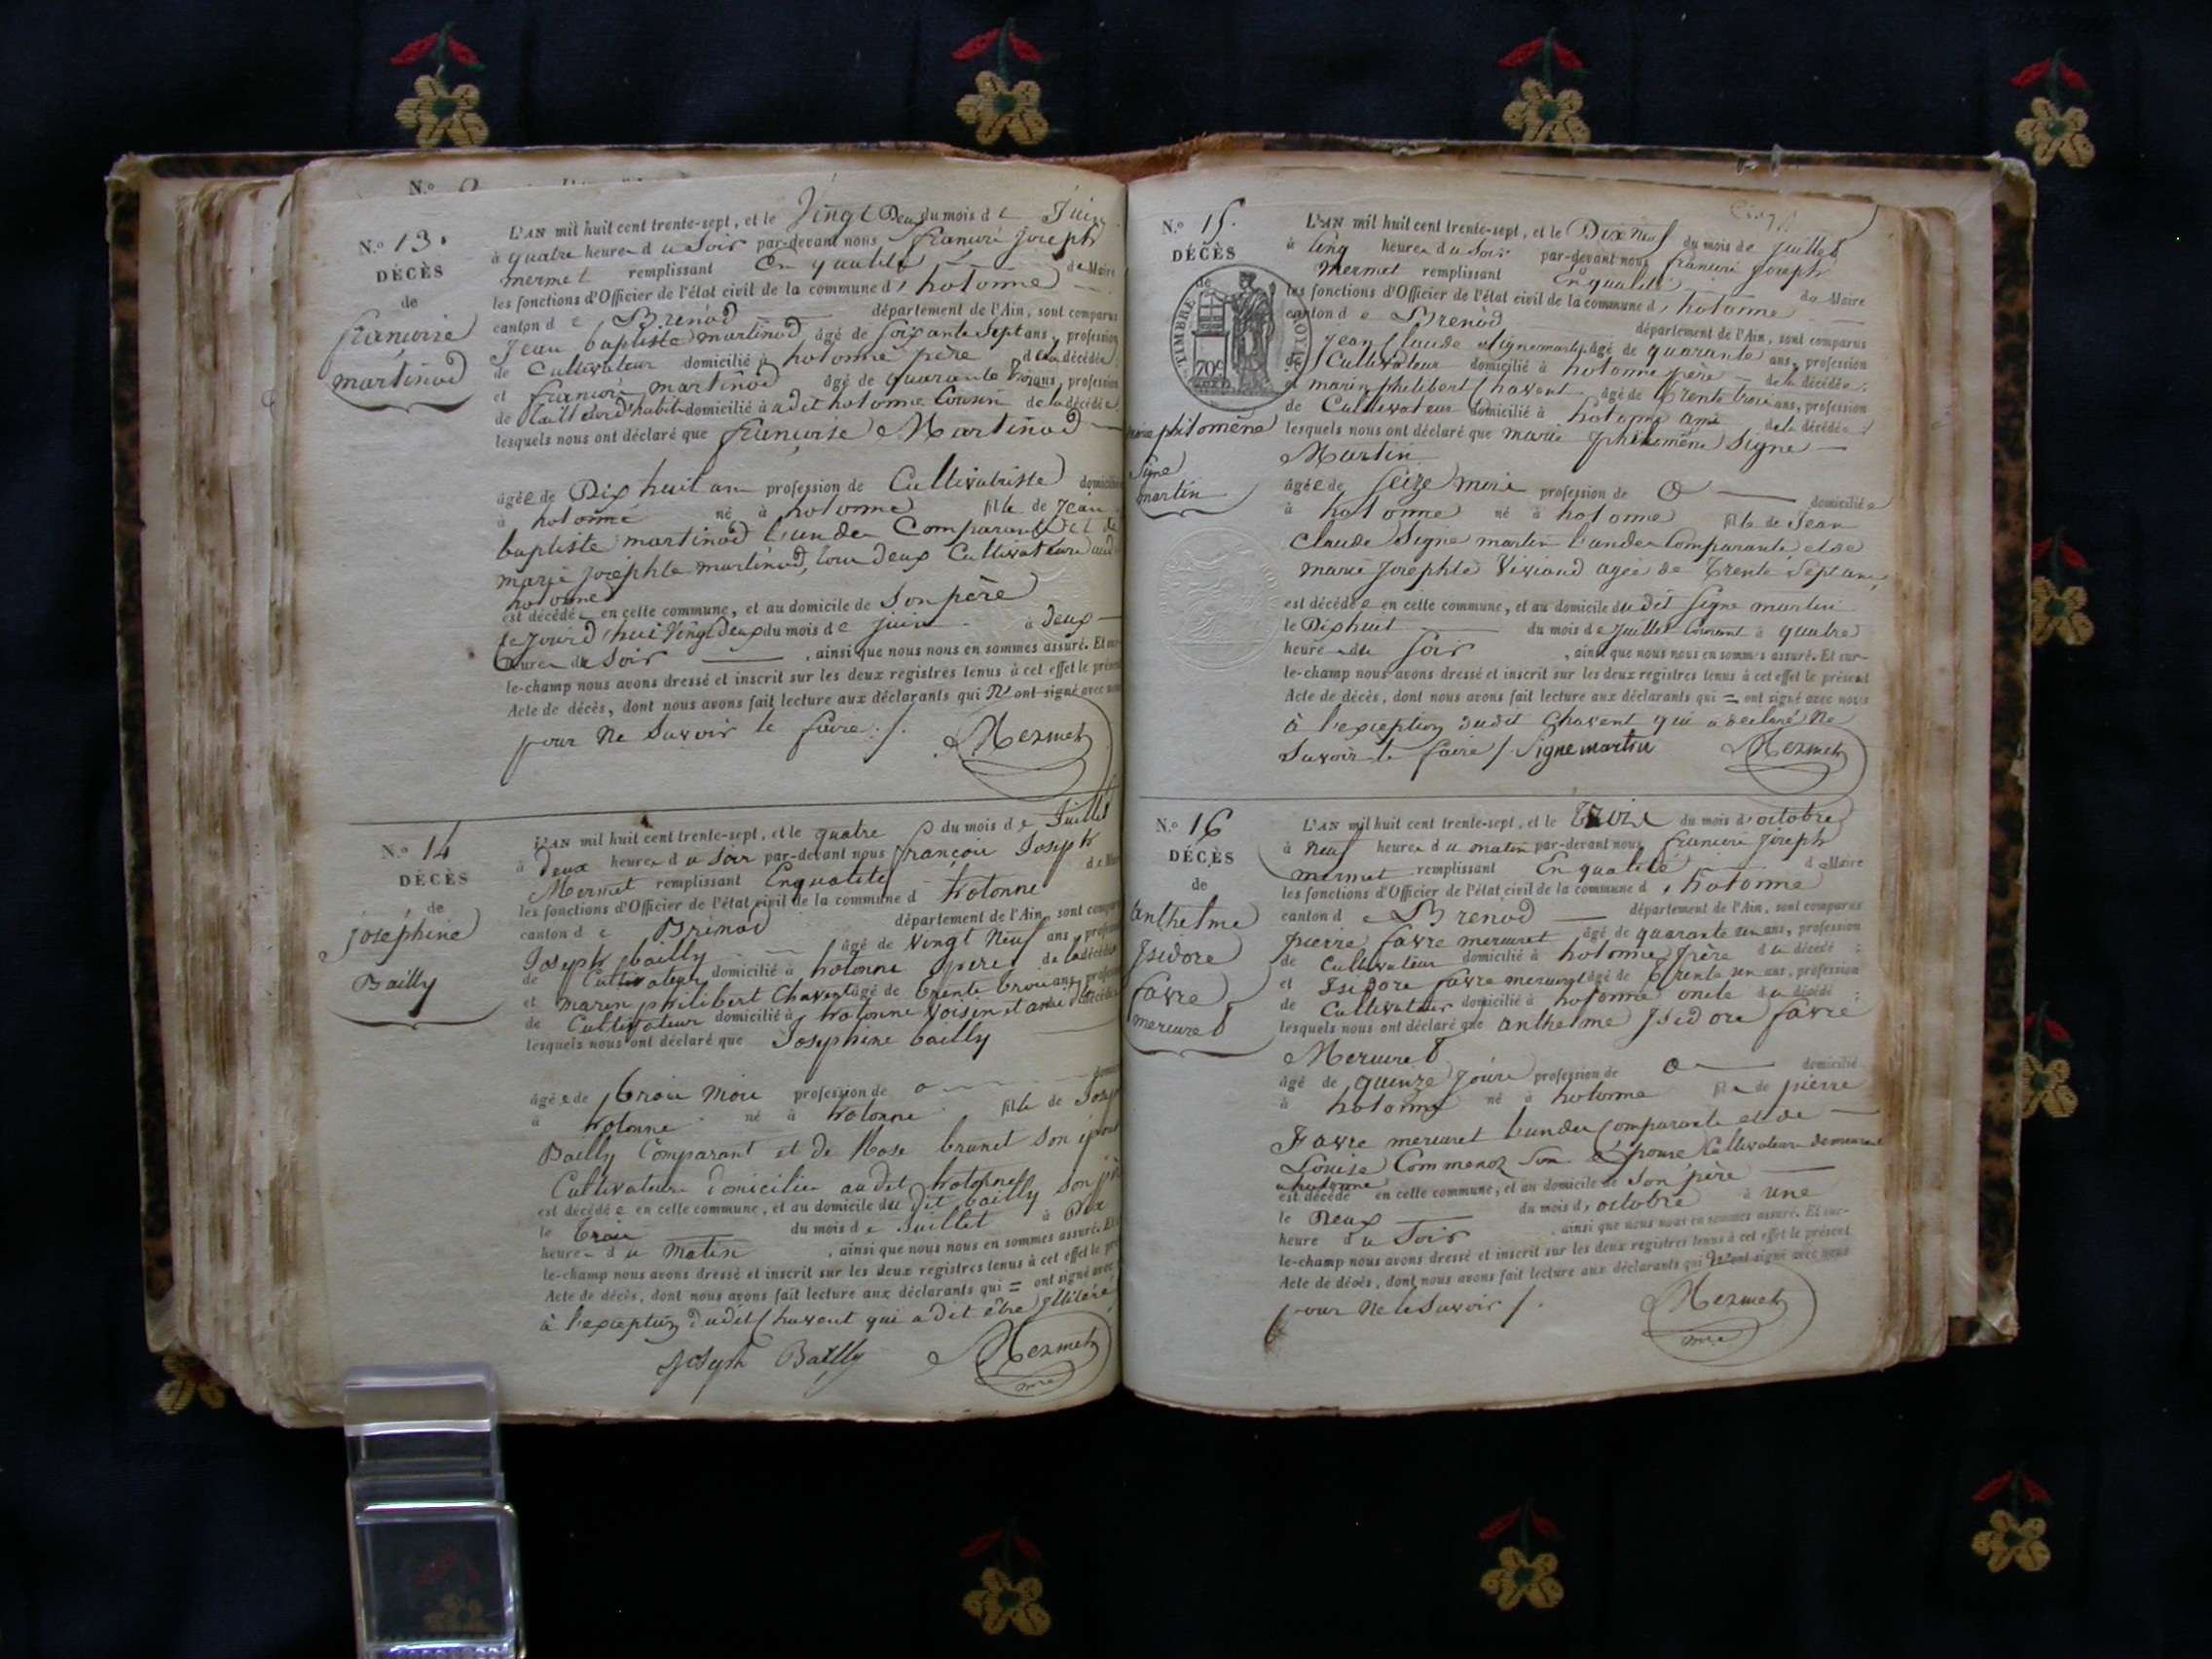 N.º 13.
DÉCÈS
de
françoise
martinod
L'AN mil huit cent trente-sept, et le Vingt Deux du mois de Juin
à quatre heures du Soir par-devant nous françois joseph
mermet remplissant En qualité de Maire
les fonctions d'Officier de l'état civil de la commune d'hotonne
canton de Brenod département de l'Ain, sont comparus
Jean baptiste martinod âgé de soixante sept ans, profession
de Cultivateur domicilié à hotonne père de la décédée
et françois martinod âgé de quarante trois ans, profession
de Tailleur d'habit domicilié à udit hotonne Cousin de la décédée
lesquels nous ont déclaré que françoise Martinod
âgée de Dix huit ans profession de Cultivatrice domiciliée
à hotonne né à hotonne fille de Jean
baptiste martinod l'un des Comparants et de
marie josephte martinod, tous deux Cultivateurs aud
hotonne
est décédée en cette commune, et au domicile de Son père
le jourd'hui Vingt deux du mois de juin à deux
heures du Soir, ainsi que nous nous en sommes assuré. Et sur-
le-champ nous avons dressé et inscrit sur les deux registres tenus à cet effet le présent
Acte de décès, dont nous avons fait lecture aux déclarants qui N'ont signé avec nous
pour ne Savoir le faire /.
Mermet
N.º 14
DÉCÈS
de
joséphine
Bailly
L'AN mil huit cent trente-sept, et le quatre du mois de Juillet
à deux heures du Soir par-devant nous françois Joseph
Mermet remplissant En qualité de Maire
les fonctions d'Officier de l'état civil de la commune d hotonne
canton de Brénod département de l'Ain, sont comparus
Joseph bailly âgé de vingt Neuf ans, profession
de Cultivateur domicilié à hotonne père de la décédée
et marin philibert Chavent âgé de trente trois ans, profession
de Cultivateur domicilié à hotonne Voisin et ami décédée
lesquels nous ont déclaré que Joséphine bailly
âgée de trois Mois profession de o domiciliée
à hotonne né à hotonne fille de Joseph
Bailly Comparant et de Rose brunet son épouse
Cultivateurs domiciliés audit hotonne
est décédée en cette commune, et au domicile dudit bailly son père
le trois du mois de Juillet à Dix
heures du matin, ainsi que nous nous en sommes assuré. Et
le-champ nous avons dressé et inscrit sur les deux registres tenus à cet effet le pré
Acte de décès, dont nous avons fait lecture aux déclarants qui = ont signé avec
à l'exception dudit Chavent qui a dit être illitéré
Joseph Bailly Mermet
mre
N.º 15.
DÉCÈS
de
TIMBRE ROYAL
70c
marie philomène
Signe
martin
L'AN mil huit cent trente-sept, et le Dix Neuf du mois de juillet
à Cinq heures du Soir par-devant nous françois joseph
mermet remplissant En qualité de Maire
les fonctions d'Officier de l'état civil de la commune d'hotonne
canton de Brenod département de l'Ain, sont comparus
jean Claude Signemartin âgé de quarante ans, profession
de Cultivateur domicilié à hotonne père de la décédée;
et marin philibert Chavent âgé de trente trois ans, profession
de Cultivateur domicilié à hotonne ami de la décédée;
lesquels nous ont déclaré que marie philomène Signe
Martin
âgée de Seize mois profession de O domiciliée
à hotonne né à hotonne fille de Jean
Claude Signe martin l'un des Comparants et de
marie josephte Viviand agée de trente Sept ans
est décédée en cette commune, et au domicile dudit Signe martin
le Dix huit du mois de juillet Courant à quatre
heures du Soir, ainsi que nous nous en sommes assuré. Et sur-
le-champ nous avons dressé et inscrit sur les deux registres tenus à cet effet le présent
Acte de décès, dont nous avons fait lecture aux déclarants qui = ont signé avec nous
à l'exception dudit Chavent qui a déclaré Ne
Savoir le faire /. Signemartin Mermet
N.º 16
DÉCÈS
de
anthelme
Isidore
favre
mercuret
L'AN mil huit cent trente-sept, et le trois du mois d'octobre
à Neuf heures du matin par-devant nous françois joseph
mermet remplissant En qualité de Maire
les fonctions d'Officier de l'état civil de la commune d'hotonne
canton de Brenod département de l'Ain, sont comparus
pierre favre mercuret âgé de quarante un ans, profession
de Cultivateur domicilié à hotonne père du décédé;
et Isidore favre mercuret âgé de trente un ans, profession
de Cultivateur domicilié à hotonne oncle du décédé;
lesquels nous ont déclaré que anthelme Isidore favre
Mercuret
âgé de quinze Jours profession de O domicilié
à hotonne né à hotonne fils de pierre
Favre mercuret l'un des Comparants et de
Louise Commenoz Son Epouse Cultivateurs demeurant
a hotonne
est décédé en cette commune, et au domicile de Son père
le Deux du mois d'octobre à une
heure du Soir, ainsi que nous nous en sommes assuré. Et sur-
le-champ nous avons dressé et inscrit sur les deux registres tenus à cet effet le présent
Acte de décès, dont nous avons fait lecture aux déclarants qui N'ont signé avec nous
pour Ne le Savoir /.
Mermet
mre